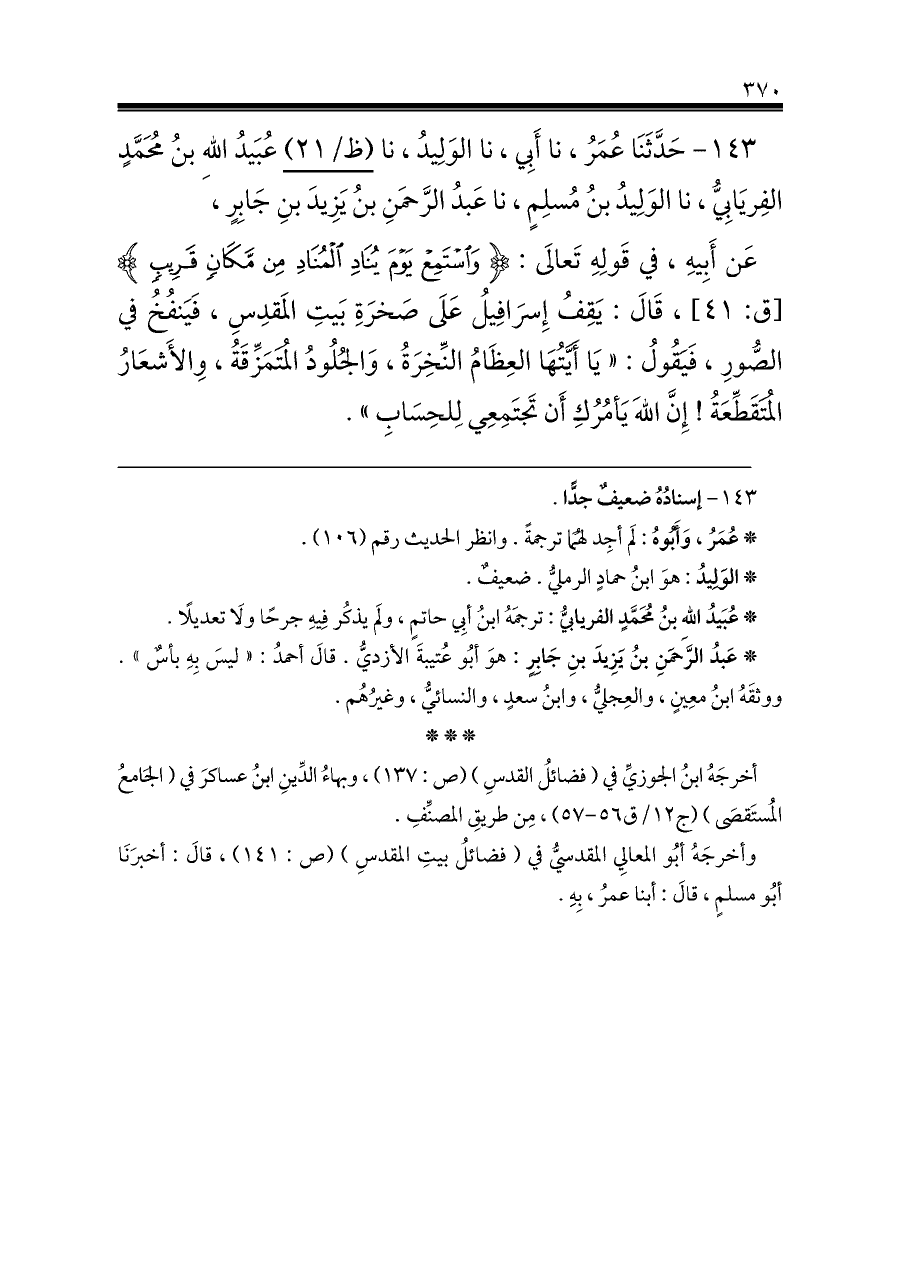 ٣٧٠
١٤٣- حَدَّثَنَا عُمَرُ ، نا أَبِي ، نا الوَلِيدُ ، نا (ظ/ ٢١) عُبَيدُ اللهِ بنُ مُحَمَّدٍ
الفِريَابِيُّ ، نا الوَلِيدُ بنُ مُسلِمٍ ، نا عَبدُ الرَّحمَنِ بنُ يَزِيدَ بنِ جَابِرٍ ،
عَن أَبِيهِ ، في قَولِهِ تَعالَى : ﴿ وَٱسۡتَمِعۡ يَوۡمَ يُنَادِ ٱلۡمُنَادِ مِن مَّكَانٖ قَرِيبٖ ﴾
[ق: ٤١] ، قَالَ : يَقِفُ إِسرَافِيلُ عَلَى صَخرَةِ بَيتِ المَقدِسِ ، فَيَنفُخُ في
الصُّورِ ، فَيَقُولُ : « يَا أَيَّتُهَا العِظَامُ النَّخِرَةُ ، وَالجُلُودُ المُتَمَزِّقَةُ ، وِالأَشعَارُ
المُتَقَطِّعَةُ ! إِنَّ اللهَ يَأمُرُكِ أَن تَجتَمِعِي لِلحِسَابِ » .
١٤٣- إسنادُهُ ضعيفٌ جدًّا .
* عُمَرُ ، وَأَبُوهُ : لَم أجِد لهُمَا ترجمةً . وانظر الحديث رقم (١٠٦) .
* الوَلِيدُ : هوَ ابنُ حمادٍ الرمليُّ . ضعيفٌ .
* عُبَيدُ اللهِ بنُ مُحَمَّدٍ الفريابيُّ : ترجمَهُ ابنُ أبِي حاتمٍ ، ولَم يذكُر فِيهِ جرحًا ولَا تعديلًا .
* عَبدُ الرَّحمَنِ بنُ يَزِيدَ بنِ جَابِرٍ : هوَ أبُو عُتيبةَ الأزديُّ . قالَ أحمدُ : « ليسَ بِهِ بأسٌ » .
ووثقَهُ ابنُ معِينٍ ، والعِجليُّ ، وابنُ سعدٍ ، والنسائيُّ ، وغيرُهُم .
* * *
أخرجَهُ ابنُ الجوزيِّ في ( فضائلُ القدسِ ) (ص : ١٣٧) ، وبهاءُ الدِّينِ ابنُ عساكرَ في ( الجَامعُ
المُستَقصَى ) (ج١٢/ ق٥٦-٥٧) ، مِن طريقِ المصنِّفِ .
وأخرجَهُ أبُو المعالِي المقدسيُّ في ( فضائلُ بيتِ المقدسِ ) (ص : ١٤١) ، قالَ : أخبرَنَا
أبُو مسلمٍ ، قالَ : أبنا عمرُ ، بِهِ .